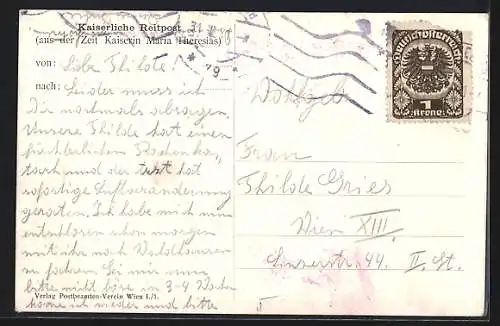 Kaiserliche Reitpost
(aus der Zeit Kaiserin Maria Theresias)
von: Liebe Thilde!
nach: Leider muss ich
Dir nochmals absagen.
Unsere Thilde hat einen
fürchterlichen Rachenka,
tarrh und der Arzt hat
sofortige Luftveränderung
geraten. Ich habe mich nun
entschlossen schon morgen
mit ihr nach Waldhausen
zu fahren. Sei mir nun
bitte nicht böse in 3-4 Wochen
komme ich wieder und bitte
Verlag Postbeamten-Verein Wien I./1.
Deutschösterreich
1
Krone
Frau
Thilde Gries
Wien XIII.
Linzerstr. 44. II. St.